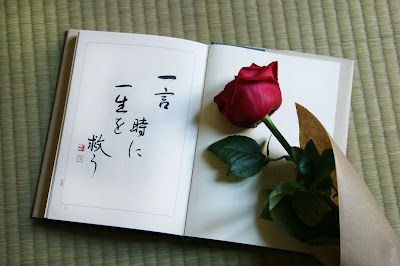 一言
時に
一生を
救う